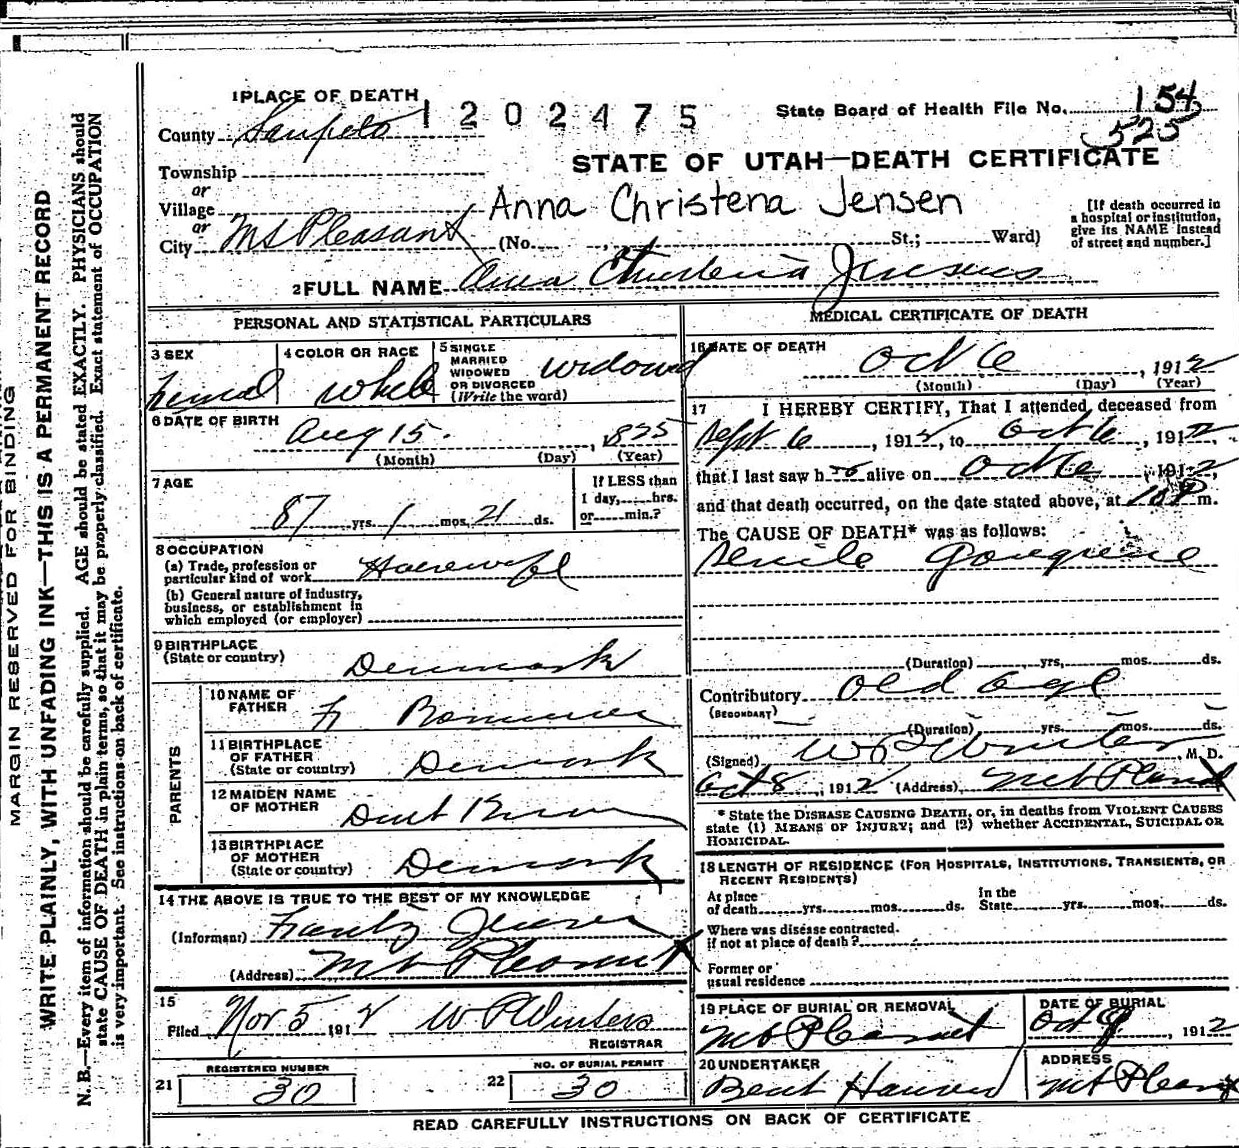 1 PLACE OF DEATH
1202475
State Board of Health File No. 154
525
County Sanpete
STATE OF UTAH—DEATH CERTIFICATE
Township
or
Village
or
City Mt Pleasant (No. , St.; Ward)
Anna Christena Jensen
[If death occurred in a hospital or institution, give its NAME instead of street and number.]
2 FULL NAME Anna Christena Jensen
PERSONAL AND STATISTICAL PARTICULARS
3 SEX
Femal
4 COLOR OR RACE
White
5 SINGLE
MARRIED
WIDOWED
OR DIVORCED
(Write the word)
widowed
6 DATE OF BIRTH
Aug 15. , 1825
(Month) (Day) (Year)
7 AGE
87 yrs. 1 mos. 21 ds.
If LESS than
1 day, hrs.
or min.?
8 OCCUPATION
(a) Trade, profession or
particular kind of work Housewife
(b) General nature of industry,
business, or establishment in
which employed (or employer)
9 BIRTHPLACE
(State or country) Denmark
PARENTS
10 NAME OF
FATHER
11 BIRTHPLACE
OF FATHER
(State or country) Denmark
12 MAIDEN NAME
OF MOTHER Dont Know
13 BIRTHPLACE
OF MOTHER
(State or country) Denmark
14 THE ABOVE IS TRUE TO THE BEST OF MY KNOWLEDGE
(Informant) Frantz Jensen
(Address) Mt Pleasant
15
Filed Nov 5 1912 W P Winters
REGISTRAR
REGISTERED NUMBER
21 30
NO. OF BURIAL PERMIT
22 30
MEDICAL CERTIFICATE OF DEATH
16 DATE OF DEATH
Oct 6 , 1912
(Month) (Day) (Year)
17 I HEREBY CERTIFY, That I attended deceased from
Sept 6 , 1912, to Oct 6 , 1912
that I last saw h er alive on Oct 6 , 1912,
and that death occurred, on the date stated above, at 10 P m.
The CAUSE OF DEATH* was as follows:
Senile Gangrene
(Duration) yrs. mos. ds.
Contributory Old Age
(SECONDARY)
(Duration) yrs. mos. ds.
(Signed) W P Winters M. D.
Oct 8 , 1912 (Address) Mt Pleasant
* State the DISEASE CAUSING DEATH, or, in deaths from VIOLENT CAUSES
state (1) MEANS OF INJURY; and (2) whether ACCIDENTAL, SUICIDAL OR
HOMICIDAL.
18 LENGTH OF RESIDENCE (FOR HOSPITALS, INSTITUTIONS, TRANSIENTS, OR
RECENT RESIDENTS)
At place
of death yrs. mos. ds.
In the
State yrs. mos. ds.
Where was disease contracted.
if not at place of death?
Former or
usual residence
19 PLACE OF BURIAL OR REMOVAL
Mt Pleasant
DATE OF BURIAL
Oct 9 , 1912
20 UNDERTAKER
Bent Hansen
ADDRESS
Mt Pleasant
READ CAREFULLY INSTRUCTIONS ON BACK OF CERTIFICATE
MARGIN RESERVED FOR BINDING
WRITE PLAINLY, WITH UNFADING INK—THIS IS A PERMANENT RECORD
N. B.—Every item of information should be carefully supplied. AGE should be stated EXACTLY. PHYSICIANS should
state CAUSE OF DEATH in plain terms, so that it may be properly classified. Exact statement of OCCUPATION
is very important. See instructions on back of certificate.